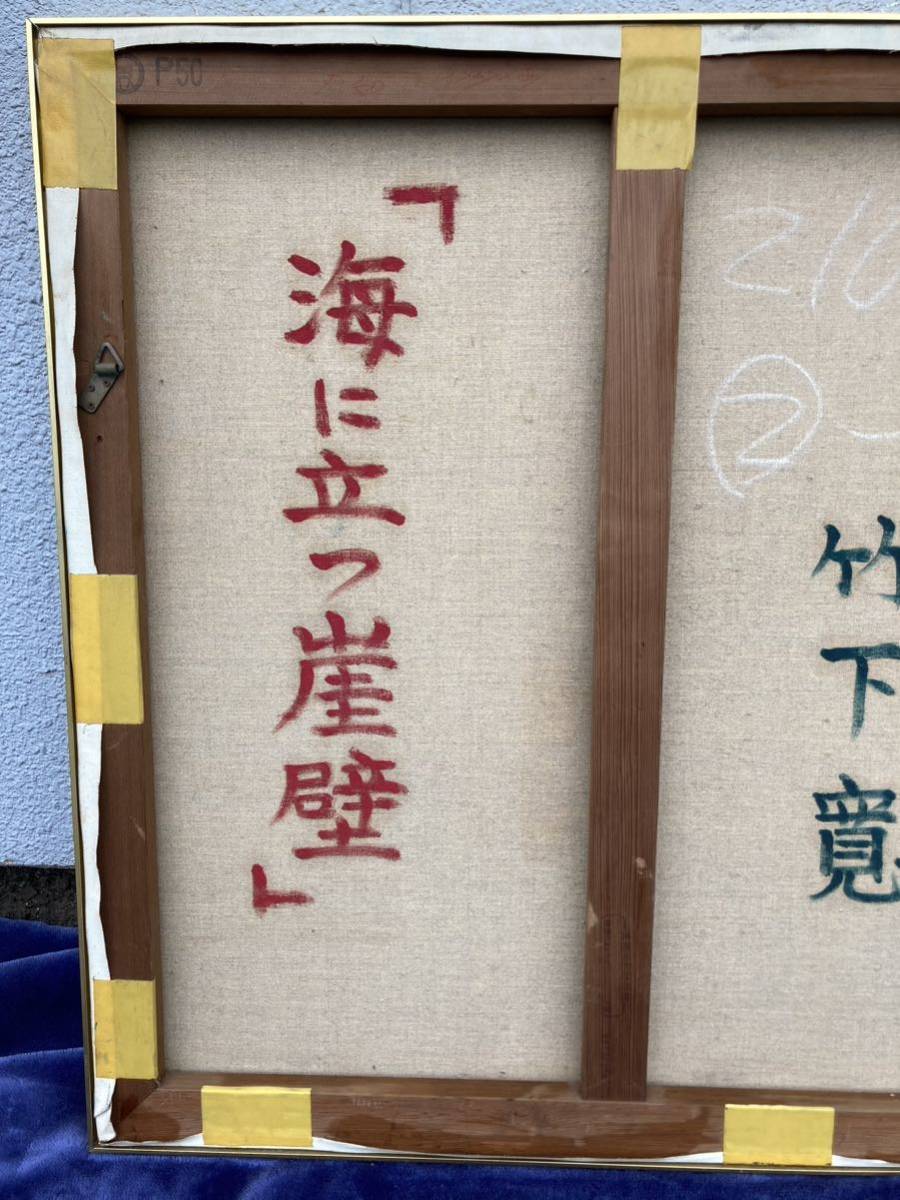 P50
「海に立つ崖壁」
②
竹下寛